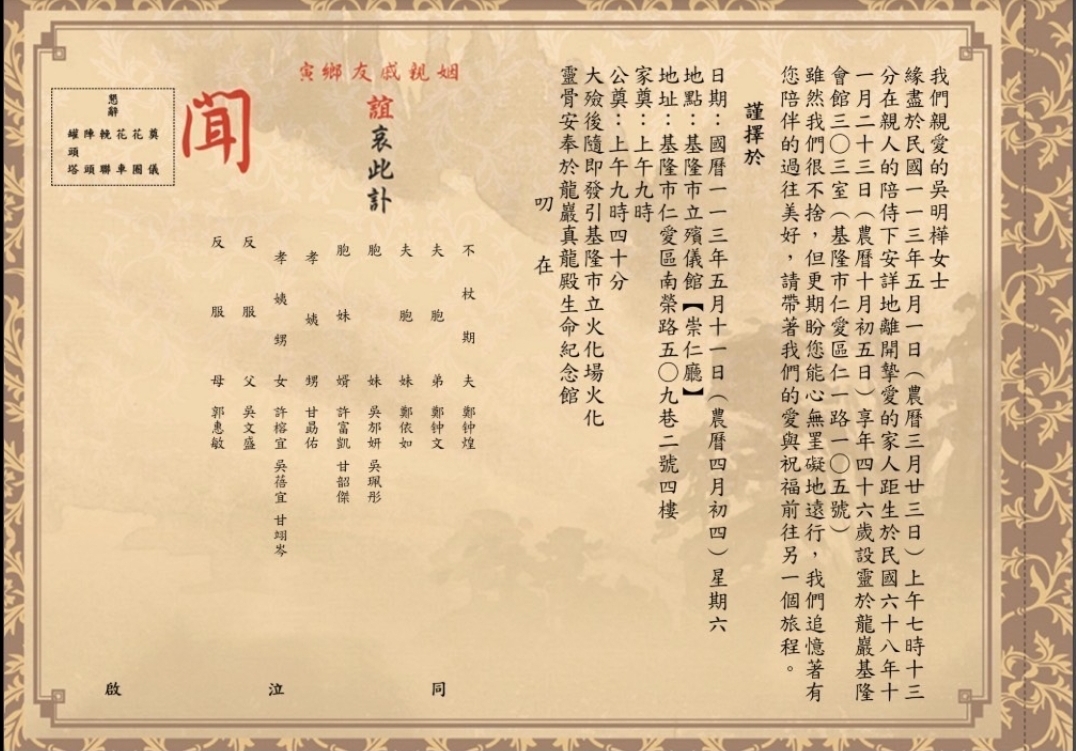 我們親愛的吳明樺女士
緣盡於民國一一三年五月一日（農曆三月廿三日）上午七時十三
分在親人的陪侍下安詳地離開摯愛的家人距生於民國六十八年十
一月二十三日（農曆十月初五日）享年四十六歲設靈於龍巖基隆
會館三〇三室（基隆市仁愛區仁一路一〇五號）
雖然我們很不捨，但更期盼您能心無罣礙地遠行，我們追憶著有
您陪伴的過往美好，請帶著我們的愛與祝福前往另一個旅程。
謹擇於
日期：國曆一一三年五月十一日（農曆四月初四）星期六
地點：基隆市立殯儀館【崇仁廳】
地址：基隆市仁愛區南榮路五〇九巷二號四樓
家奠：上午九時
公奠：上午九時四十分
大殮後隨即發引基隆市立火化場火化
靈骨安奉於龍巖真龍殿生命紀念館
叨在
姻親戚友鄉寅
誼哀此訃
聞
不杖期夫 鄭钟煌
夫胞弟 鄭钟文
夫胞妹 鄭依如
胞妹 吳郁妍 吳珮彤
胞妹婿 許富凱 甘韶傑
孝姨甥 甘勗佑
孝姨甥女 許榕宜 吳蓓宜 甘翊岑
反服父 吳文盛
反服母 郭惠敏
同泣啟
懇辭
奠儀
花圈
花車
輓聯
陣頭
罐頭塔